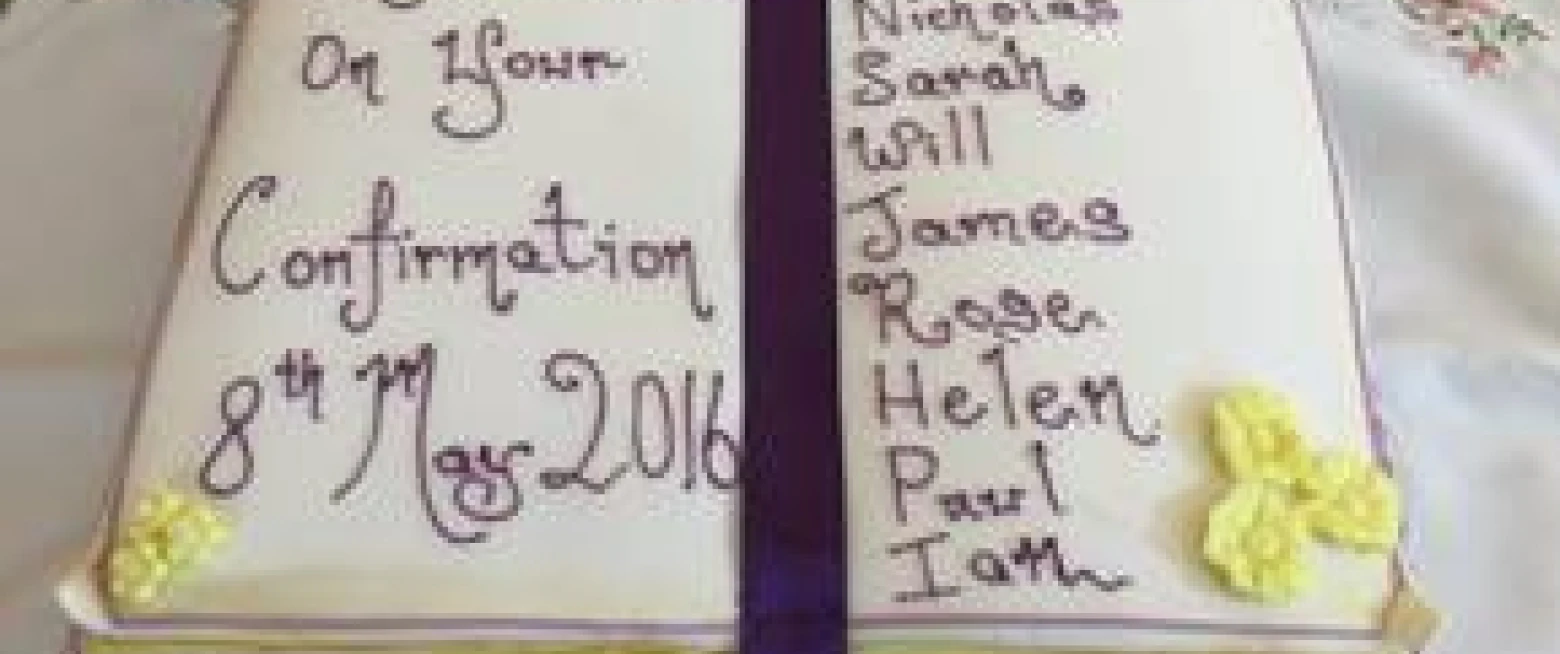 On Your
Confirmation
8th May 2016
Nicholas
Sarah
Will
James
Rose
Helen
Paul
Ian